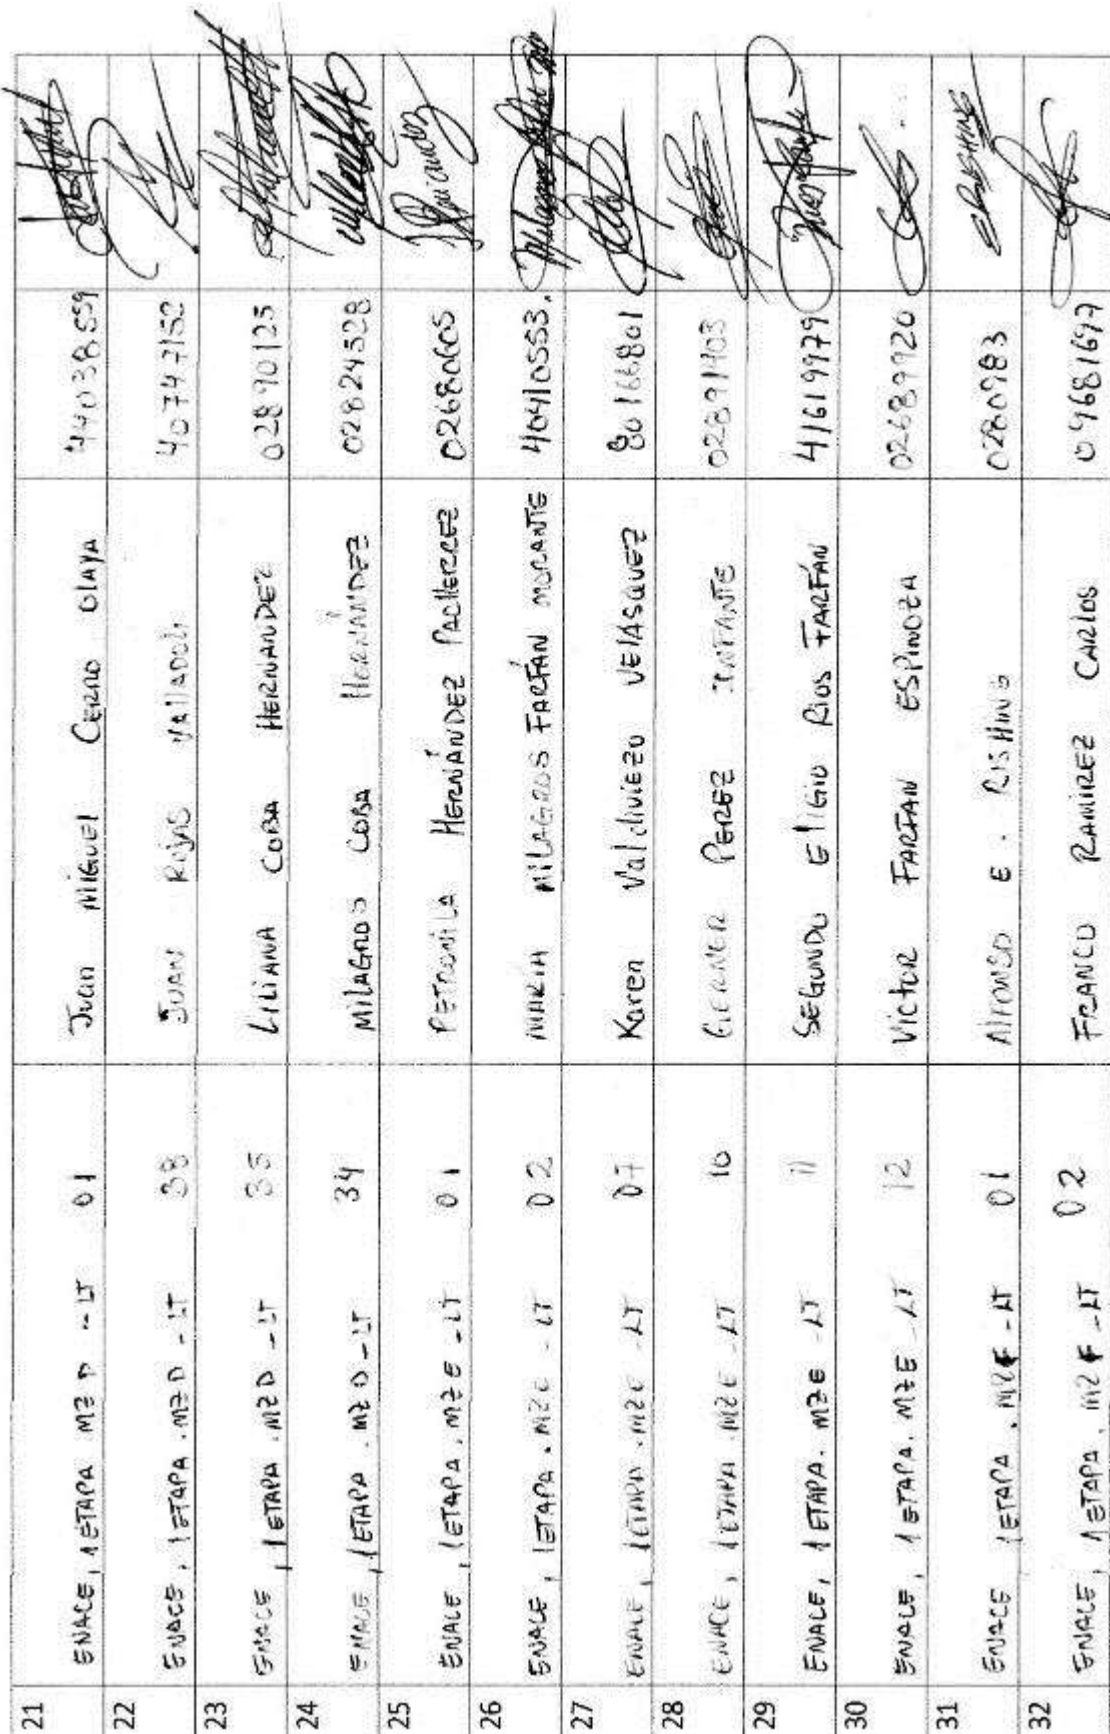 21 ENACE, 1 ETAPA MZ D -LT 01 Juan Miguel Cerro Olaya 44038559
22 ENACE, 1 ETAPA. MZ D - LT 38 Juan Rojas 40747152
23 ENACE, 1 ETAPA. MZ D - LT 35 Liliana Coba Hernández 02890125
24 ENACE, 1 ETAPA. MZ D - LT 34 Milagros Coba Hernández 02824528
25 ENACE, 1 ETAPA. MZ E - LT 01 Petronila Hernández Pacherrez 02680605
26 ENACE, 1 ETAPA. MZ E - LT 02 María Milagros Farfán Morante 40410553.
27 ENACE, 1 ETAPA. MZ E - LT 07 Karen Valdiviezo Velásquez 80166801
28 ENACE, 1 ETAPA. MZ E - LT 10 Perez Infante 02891403
29 ENACE, 1 ETAPA. MZ E - LT 11 Segundo Eligio Rios Farfán 41619979
30 ENACE, 1 ETAPA. MZ E - LT 12 Victor Farfan Espinoza 02689920
31 ENACE 1 ETAPA. MZ F - LT 01 Alfonso E. Rishing 0280983 ERISHING
32 ENACE, 1 ETAPA. MZ F - LT 02 Franco Ramirez Carlos 09681697